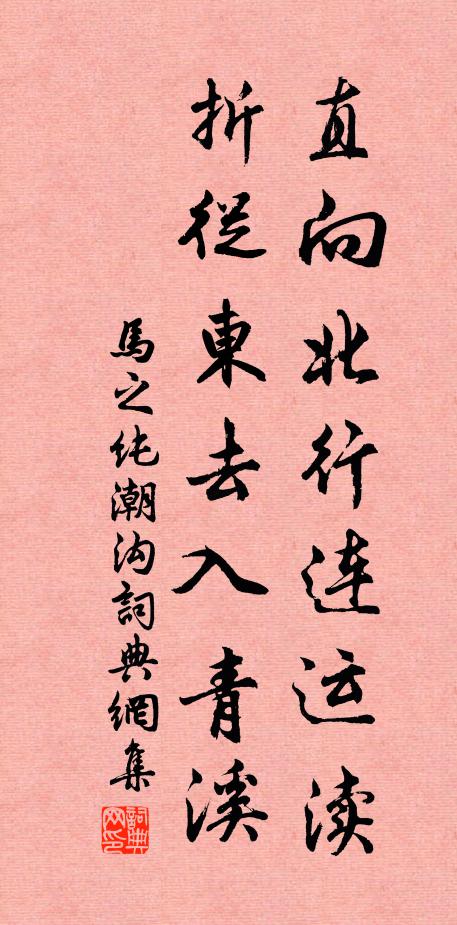 直向北行連运渎
折從東去入青溪
馬之纯潮沟詞典網集
詞典网印